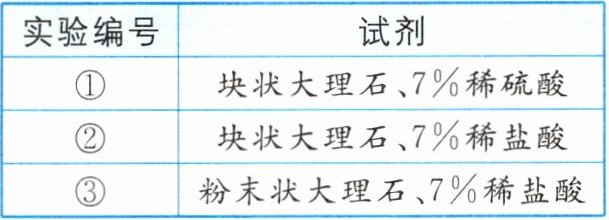 实验编号 试剂
① 块状大理石、7%稀硫酸
② 块状大理石、7%稀盐酸
③ 粉末状大理石、7%稀盐酸